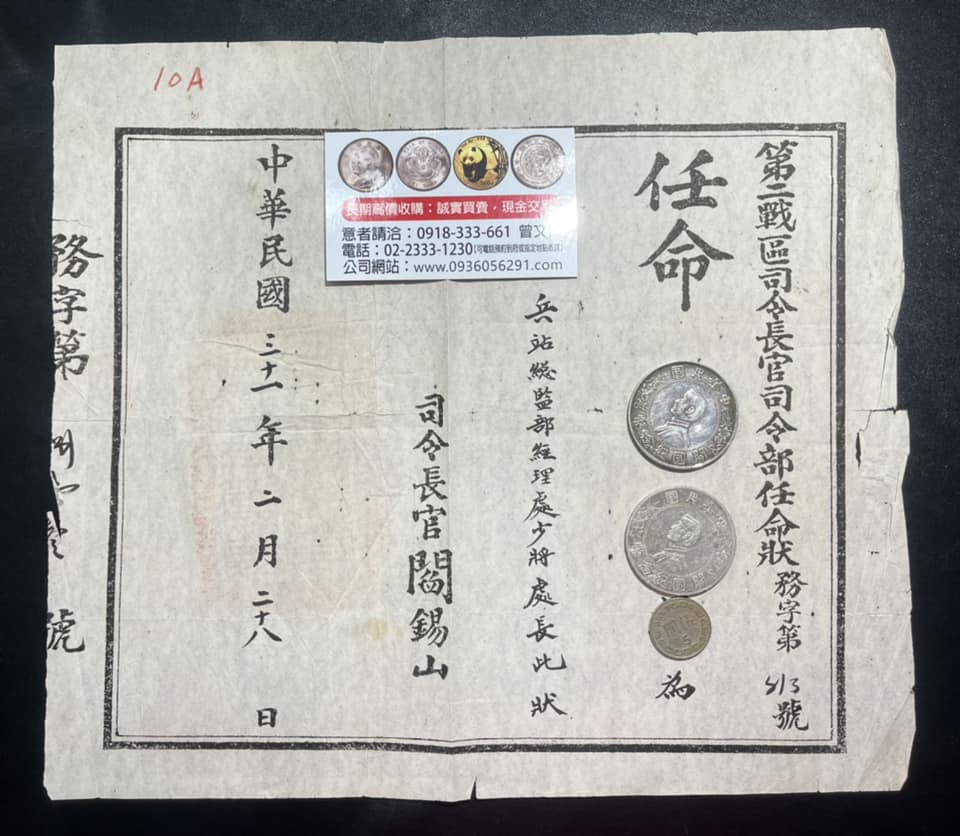 10A
第二戰區司令長官司令部任命狀 務字第 號
任命
為
兵站總監部經理處少將處長此狀
司令長官閻錫山
中華民國三十一年二月二十八日
務字第 號
長期高價收購：誠實買賣，現金交
意者請洽：0918-333-661 曾又
電話：02-2333-1230
公司網站：www.0936056291.com